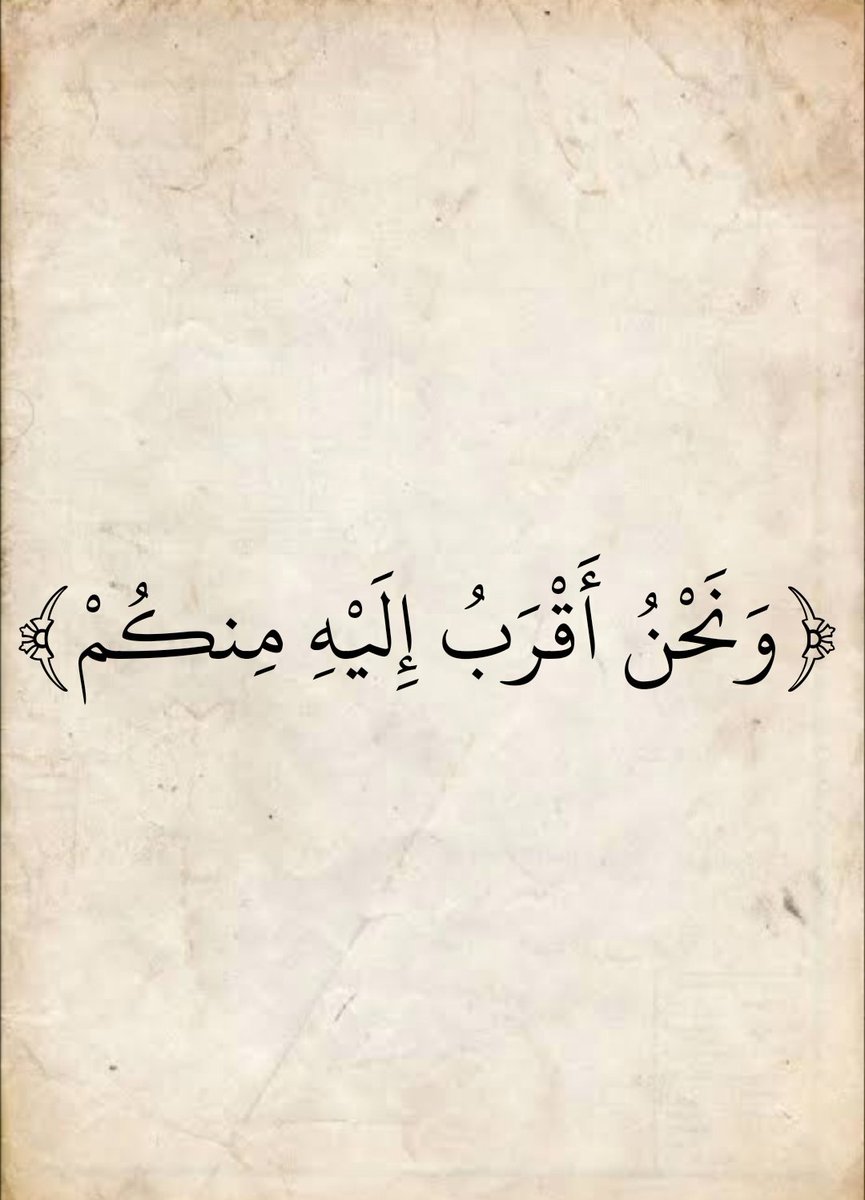 ﴿وَنَحْنُ أَقْرَبُ إِلَيْهِ مِنكُمْ﴾